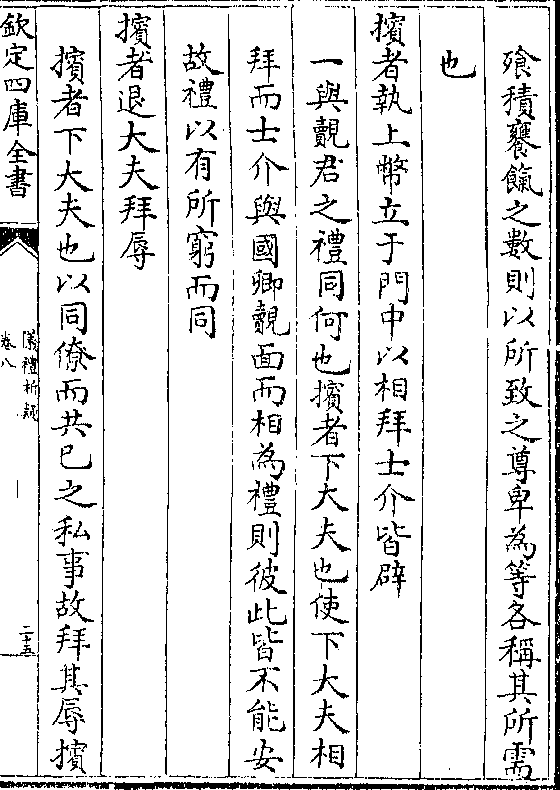 飱積饔餼之數則以所致之尊卑為等各稱其所需
也
擯者執上幣立于門中以相拜士介皆辟
一與覿君之禮同何也擯者下大夫也使下大夫相
拜而士介與國卿覿面而相為禮則彼此皆不能安
故禮以有所窮而同
擯者退大夫拜辱
擯者下大夫也以同僚而共已之私事故拜其辱擯
欽定四庫全書
儀禮析疑
卷八
二十五